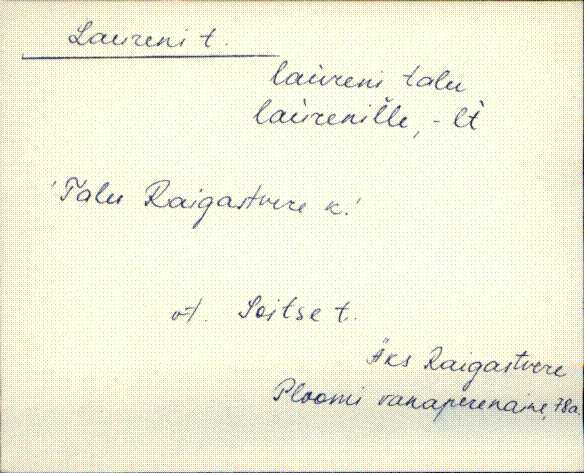 Laureni t.
laureni talu
laurenille, -lt
'Talu Raigastvere k.'
vt. Soitse t.
Äks Raigastvere
Ploomi vanaperenaine, 78a.